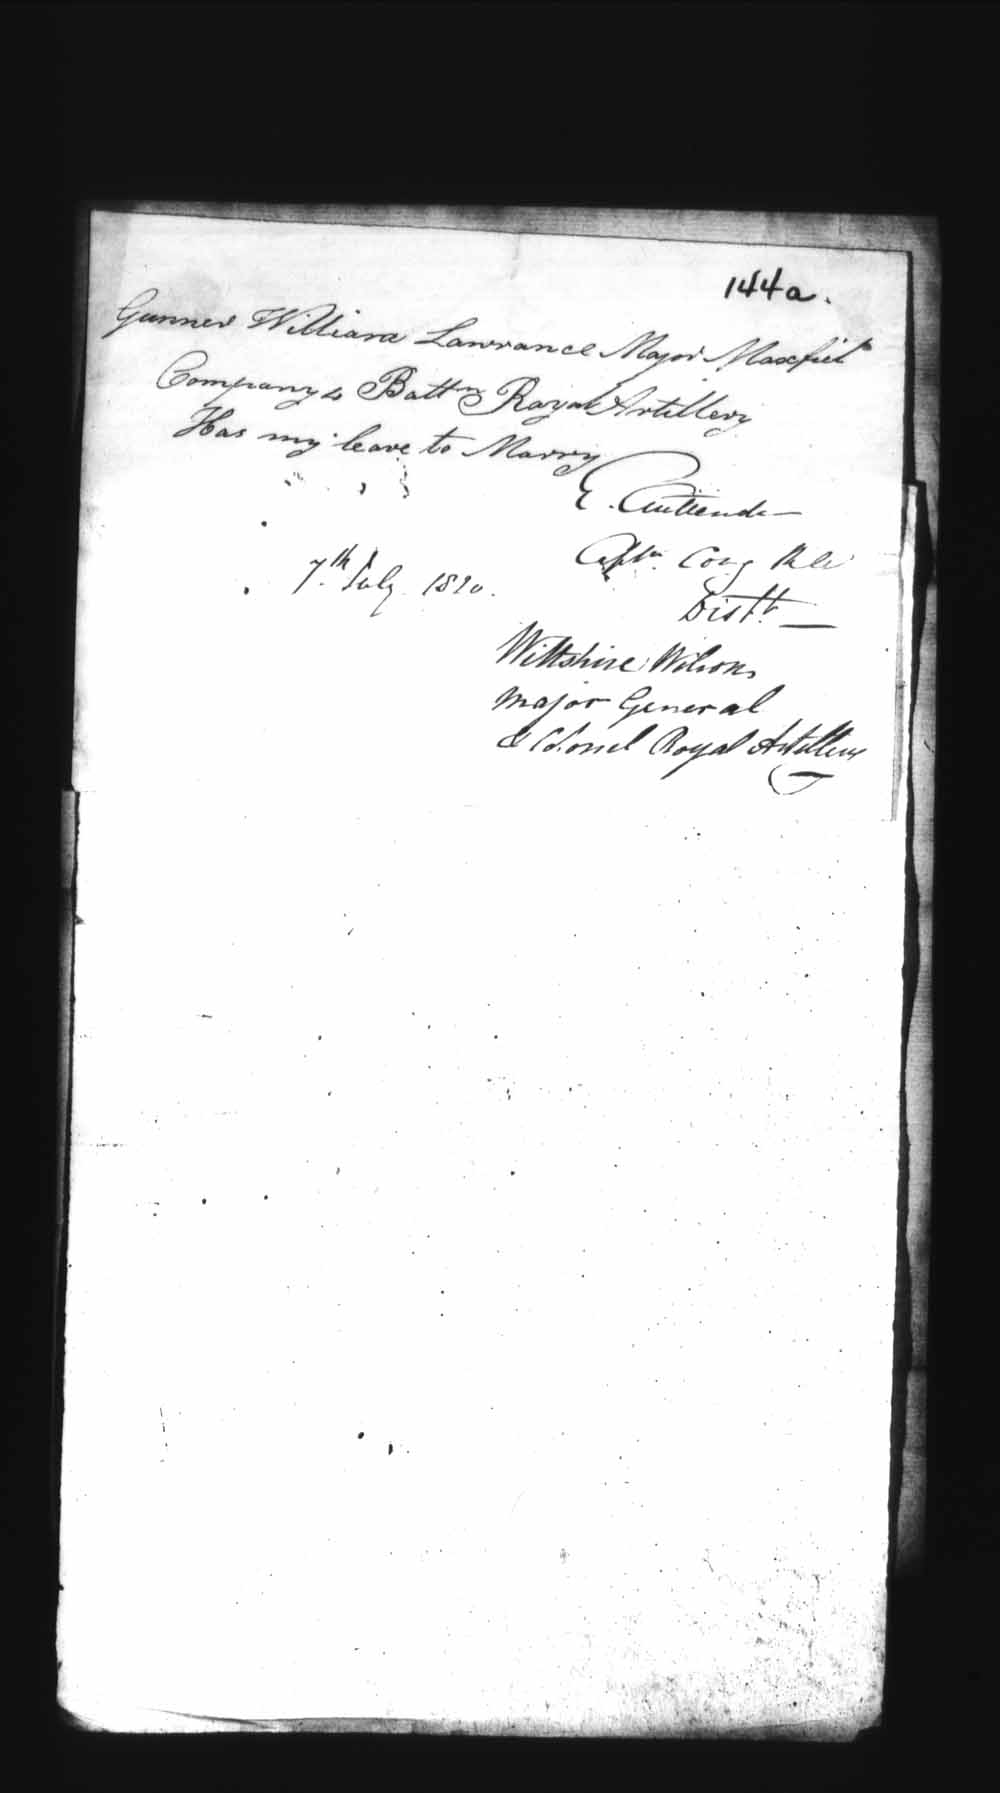 144a.
Gunner William Lawrance Major Maxfiel
Company 4 Battn Royal Artillery
Has my leave to Marry
E.
Captn. Comg
Distt.
7th July 1820.
Wiltshire Wilson
Major General
& Colonel Royal Artillery